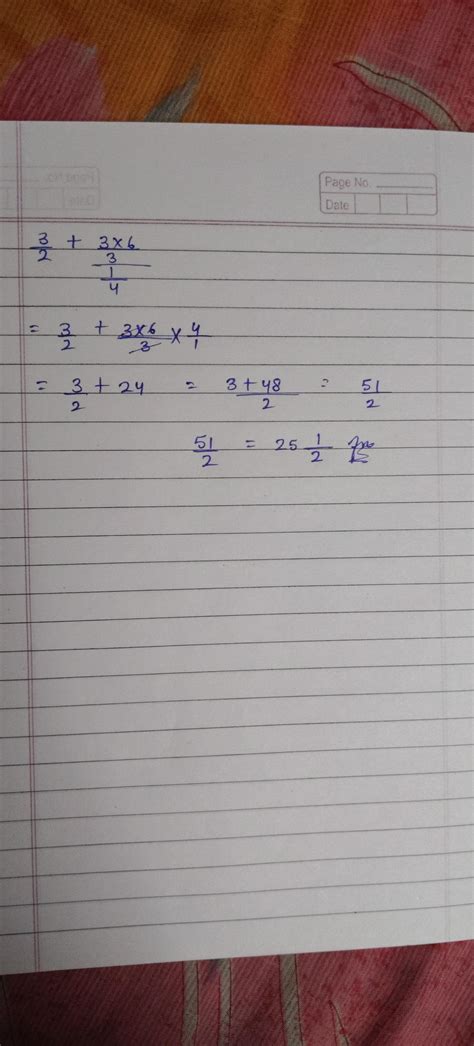 Page No.
Date
3/2 + (3×6/3)/(1/4)
= 3/2 + 3×6/3 × 4/1
= 3/2 + 24 = 3+48/2 = 51/2
51/2 = 25 1/2